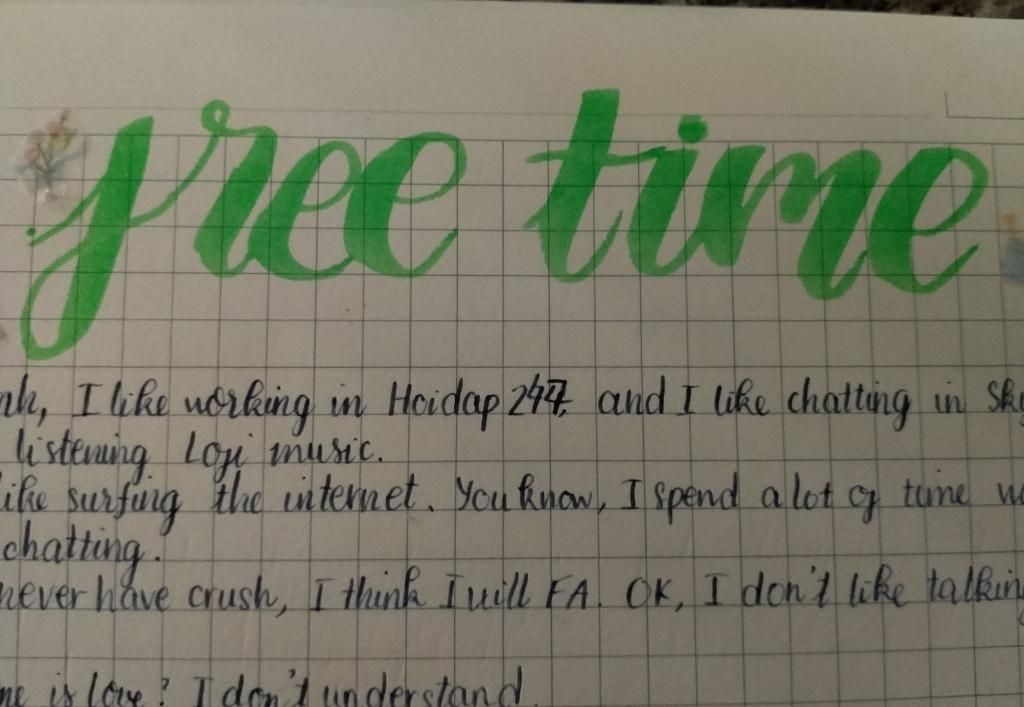 free time
nh, I like working in Hoidap 247, and I like chatting in Sky
listening Lofi music.
like surfing the internet. You know, I spend a lot of time w
chatting.
never have crush, I think I will FA. OK, I don't like talking
me is love? I don't understand.